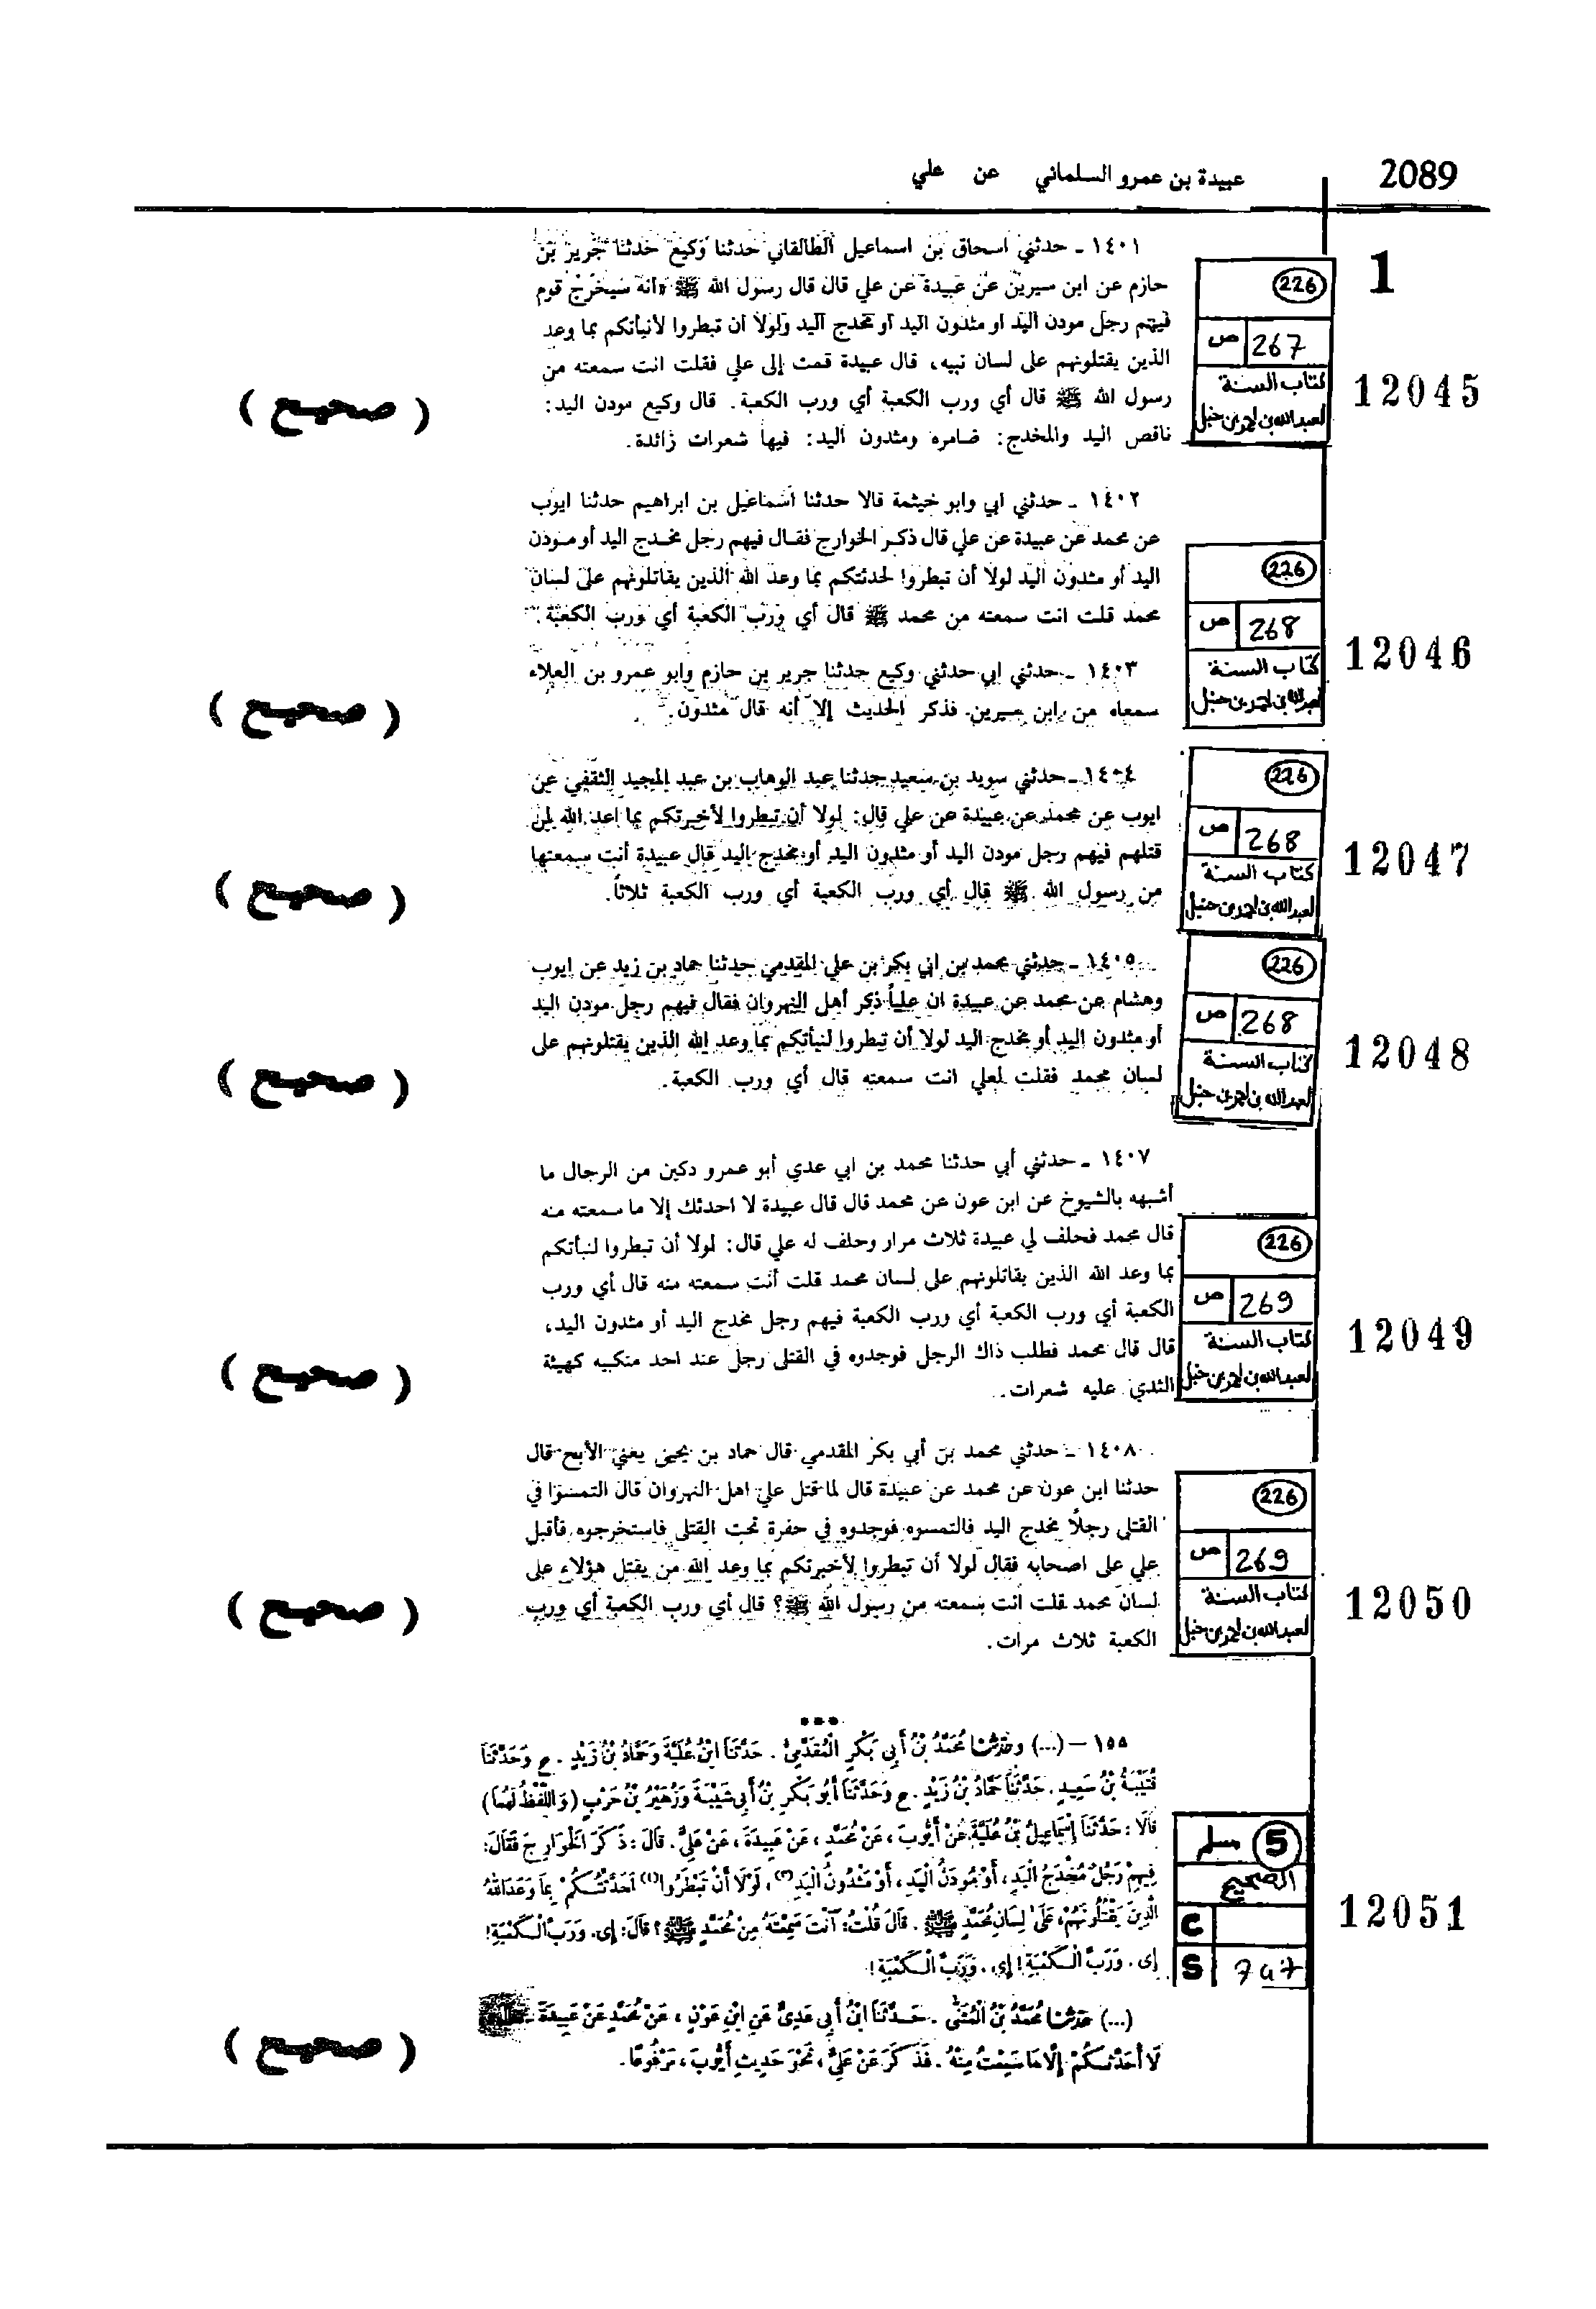 2089
عبيدة بن عمرو السلماني عن علي
1
226
ص 267
كتاب السنة
لعبد الله بن احمد بن حنبل
12045
١٤٠١ ـ حدثني اسحاق بن اسماعيل الطالقاني حدثنا وكيع حدثنا جرير بن
حازم عن ابن سيرين عن عبيدة عن علي قال قال رسول الله ﷺ «أنه سيخرج قوم
فيهم رجل مودن اليد او مثدون اليد أو مخدج اليد ولولا أن تبطروا لأنبأتكم بما وعد
الذين يقتلونهم على لسان نبيه، قال عبيدة قمت إلى علي فقلت انت سمعته من
رسول الله ﷺ قال أي ورب الكعبة أي ورب الكعبة. قال وكيع مودن اليد:
ناقص اليد والمخدج: ضامره ومثدون اليد: فيها شعرات زائدة.
( صحيح )
226
ص 268
كتاب السنة
لعبد الله بن احمد بن حنبل
12046
١٤٠٢ ـ حدثني ابي وابو خيثمة قالا حدثنا اسماعيل بن ابراهيم حدثنا ايوب
عن محمد عن عبيدة عن علي قال ذكر الخوارج فقال فيهم رجل مخدج اليد أو مودن
اليد أو مثدون اليد لولا أن تبطروا لحدثتكم بما وعد الله الذين يقاتلونهم على لسان
محمد قلت انت سمعته من محمد ﷺ قال أي ورب الكعبة أي ورب الكعبة.
١٤٠٣ ـ حدثني ابي حدثني وكيع حدثنا جرير بن حازم وابو عمرو بن العلاء
سمعاه من ابن سيرين فذكر الحديث إلا أنه قال مثدون.
( صحيح )
226
ص 268
كتاب السنة
لعبد الله بن احمد بن حنبل
12047
١٤٠٤ ـ حدثني سويد بن سعيد حدثنا عبد الوهاب بن عبد المجيد الثقفي عن
ايوب عن محمد عن عبيدة عن علي قال: لولا أن تبطروا لأخبرتكم بما اعد الله لمن
قتلهم فيهم رجل مودن اليد أو مثدون اليد أو مخدج اليد قال عبيدة أنت سمعتها
من رسول الله ﷺ قال أي ورب الكعبة أي ورب الكعبة ثلاثاً.
( صحيح )
226
ص 268
كتاب السنة
لعبد الله بن احمد بن حنبل
12048
١٤٠٥ ـ حدثني محمد بن ابي بكر بن علي المقدمي حدثنا حماد بن زيد عن ايوب
وهشام عن محمد عن عبيدة ان علياً ذكر أهل النهروان فقال فيهم رجل مودن اليد
أو مثدون اليد أو مخدج اليد لولا أن تبطروا لنبأتكم بما وعد الله الذين يقتلونهم على
لسان محمد فقلت لعلي انت سمعته قال أي ورب الكعبة.
( صحيح )
226
ص 269
كتاب السنة
لعبد الله بن احمد بن حنبل
12049
١٤٠٧ ـ حدثني أبي حدثنا محمد بن ابي عدي أبو عمرو دكين من الرجال ما
أشبهه بالشيوخ عن ابن عون عن محمد قال قال عبيدة لا احدثك إلا ما سمعته منه
قال محمد فحلف لي عبيدة ثلاث مرار وحلف له علي قال: لولا أن تبطروا لنبأتكم
بما وعد الله الذين يقاتلونهم على لسان محمد قلت أنت سمعته منه قال أي ورب
الكعبة أي ورب الكعبة أي ورب الكعبة فيهم رجل مخدج اليد أو مثدون اليد،
قال قال محمد فطلب ذاك الرجل فوجدوه في القتلى رجل عند احد منكبيه كهيئة
الثدي عليه شعرات.
( صحيح )
226
ص 269
كتاب السنة
لعبد الله بن احمد بن حنبل
12050
١٤٠٨ ـ حدثني محمد بن أبي بكر المقدمي قال حماد بن يحيى يعني الأبح قال
حدثنا ابن عون عن محمد عن عبيدة قال لما قتل علي اهل النهروان قال التمسوا في
القتلى رجلًا مخدج اليد فالتمسوه فوجدوه في حفرة تحت القتلى فاستخرجوه فأقبل
علي على اصحابه فقال لولا أن تبطروا لأخبرتكم بما وعد الله من يقتل هؤلاء على
لسان محمد قلت انت سمعته من رسول الله ﷺ؟ قال أي ورب الكعبة أي ورب
الكعبة ثلاث مرات.
( صحيح )
***
5 مسلم
الصحيح
C
S 747
12051
١٥٥ – (...) وحدثنا مُحَمَّدُ بْنُ أَبِي بَكْرٍ الْمُقَدَّمِيُّ . حَدَّثَنَا ابْنُ عُلَيَّةَ وَحَمَّادُ بْنُ زَيْدٍ . ح وَحَدَّثَنَا
قُتَيْبَةُ بْنُ سَعِيدٍ . حَدَّثَنَا حَمَّادُ بْنُ زَيْدٍ . ح وَحَدَّثَنَا أَبُو بَكْرِ بْنُ أَبِي شَيْبَةَ وَزُهَيْرُ بْنُ حَرْبٍ ( وَاللَّفْظُ لَهُمَا )
قَالَا : حَدَّثَنَا إِسْمَاعِيلُ بْنُ عُلَيَّةَ عَنْ أَيُّوبَ ، عَنْ مُحَمَّدٍ ، عَنْ عَبِيدَةَ ، عَنْ عَلِيٍّ . قَالَ : ذَكَرَ الْخَوَارِجَ فَقَالَ :
فِيهِمْ رَجُلٌ مُخْدَجُ الْيَدِ ، أَوْ مُودَنُ الْيَدِ ، أَوْ مَثْدُونُ الْيَدِ(٣) ، لَوْلَا أَنْ تَبْطَرُوا(١) لَحَدَّثْتُكُمْ بِمَا وَعَدَ اللهُ
الَّذِينَ يَقْتُلُونَهُمْ، عَلَى لِسَانِ مُحَمَّدٍ ﷺ . قَالَ قُلْتُ : آنْتَ سَمِعْتَهُ مِنْ مُحَمَّدٍ ﷺ ؟ قَالَ : إِي. وَرَبِّ الْكَعْبَةِ !
إِي . وَرَبِّ الْكَعْبَةِ ! إِي . وَرَبِّ الْكَعْبَةِ !
(...) حدثنا مُحَمَّدُ بْنُ الْمُثَنَّى . حَدَّثَنَا ابْنُ أَبِي عَدِيٍّ عَنِ ابْنِ عَوْنٍ ، عَنْ مُحَمَّدٍ عَنْ عَبِيدَةَ
لَا أُحَدِّثُكُمْ إِلَّا مَا سَمِعْتُ مِنْهُ . فَذَكَرَ عَنْ عَلِيٍّ ، نَحْوَ حَدِيثِ أَيُّوبَ ، مَرْفُوعًا .
( صحيح )